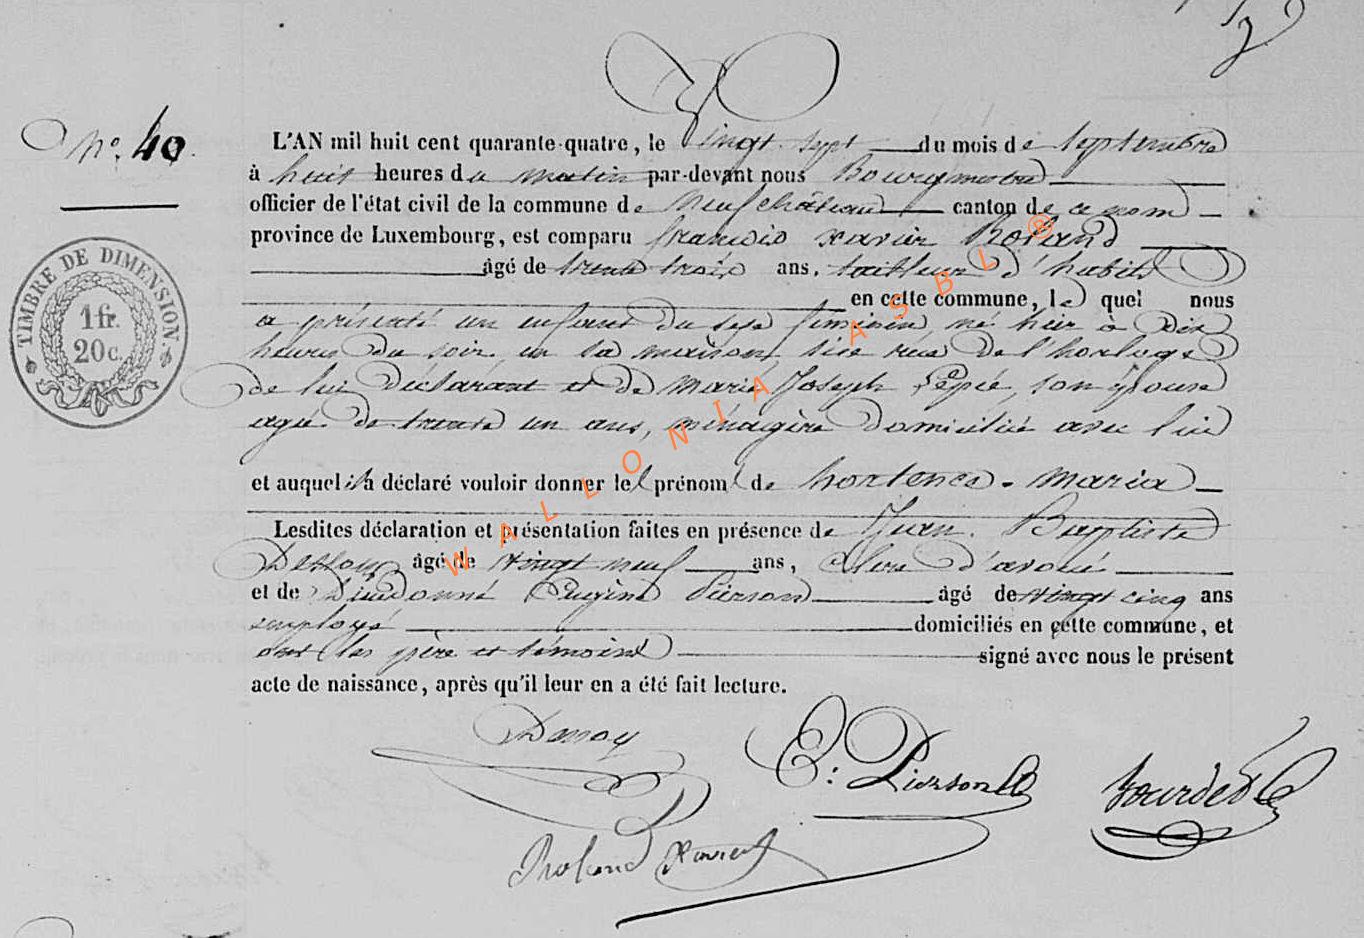 nº. 40
L'AN mil huit cent quarante-quatre, le Vingt sept du mois de Septembre
à huit heures du matin par-devant nous Bourgmestre
officier de l'état civil de la commune de Neufchâteau canton de ce nom
province de Luxembourg, est comparu françois xavier Roland
âgé de trente trois ans, tailleur d'habits
en cette commune, lequel nous
a présenté un enfant du sexe féminin, né hier à Dix
heures du soir, en sa maison, sise rue de l'horloge
de lui Déclarant et de Marie Joseph son épouse
agée de trente un ans, ménagère Domiciliée avec lui
et auquel il a déclaré vouloir donner les prénoms de hortence. Maria
Lesdites déclaration et présentation faites en présence de Jean Baptiste
âgé de vingt neuf ans, Clerc d'avoué
et de Dieudonné Eugène Pierson âgé de vingt cinq ans
employé domiciliés en cette commune, et
ont les père et témoins signé avec nous le présent
acte de naissance, après qu'il leur en a été fait lecture.
E: Pierson
Roland Xavier
TIMBRE DE DIMENSION
1 fr.
20 c.
WALLONIA ASBL ®